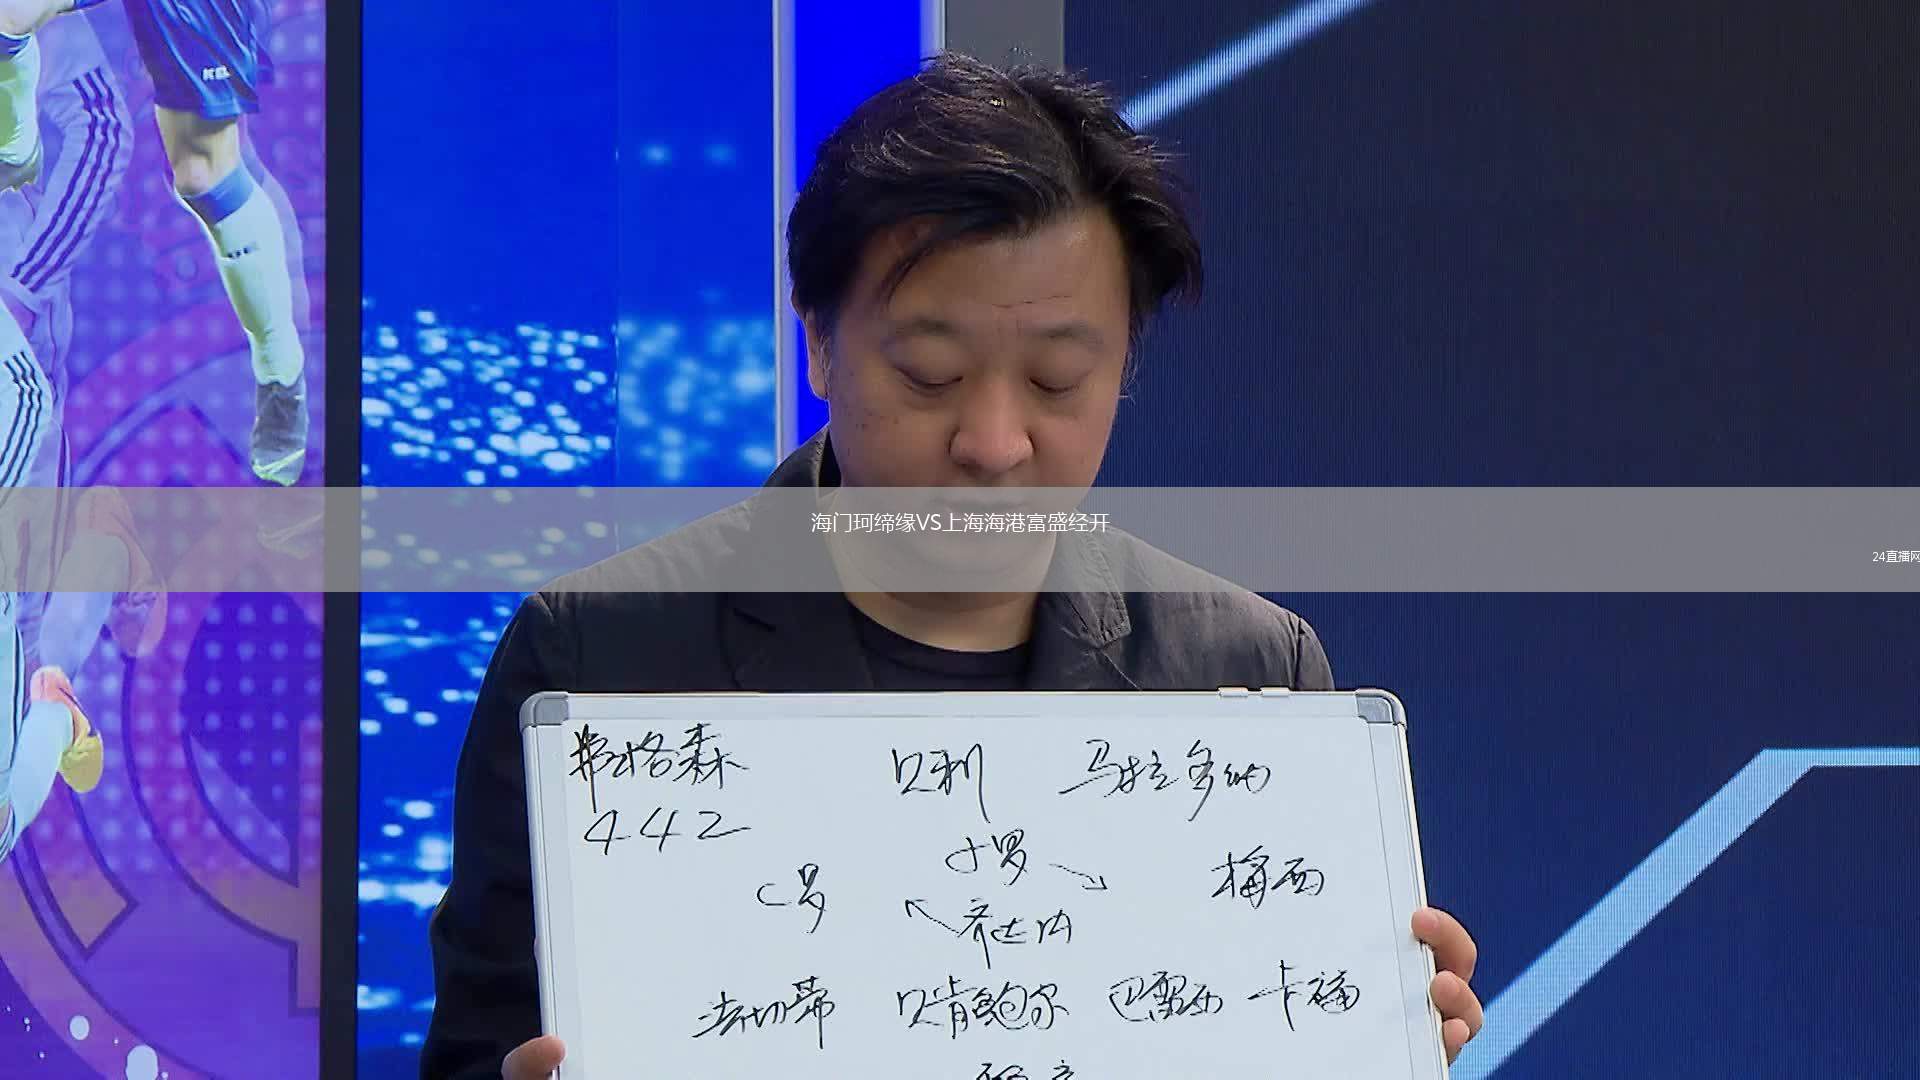 海门珂缔缘VS上海海港富盛经开
24直播网
弗格森 贝利 马拉多纳
442
小罗
C罗 梅西
齐达内
法切蒂 贝肯鲍尔 巴雷西 卡福